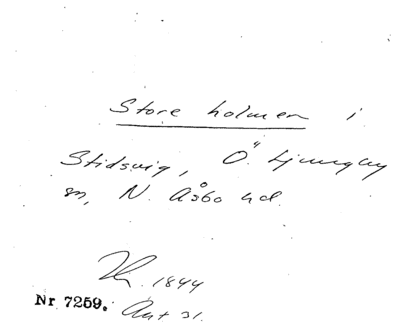 Store holmen i
Stidsvig, Ö. Ljungby
sn, N. Åsbo hd.
1844
Nr 7259. Ant 31.